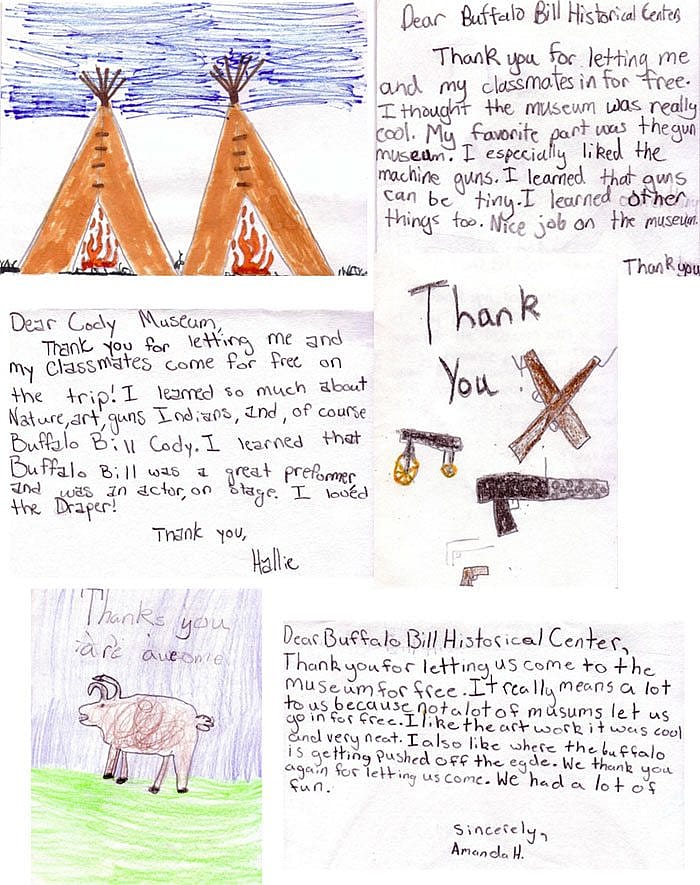 Dear Buffalo Bill Historical Center,
Thank you for letting me
and my classmates in for free.
I thought the museum was really
cool. My favorite part was the gun
museum. I especially liked the
machine guns. I learned that guns
can be tiny. I learned other
things too. Nice job on the museum.
Thank you
Dear Cody Museum,
Thank you for letting me and
my Classmates come for free on
the trip! I learned so much about
Nature, art, guns Indians, and, of course
Buffalo Bill Cody. I learned that
Buffalo Bill was a great preformer
and was an actor, on stage. I loved
the Draper!
Thank you,
Hallie
Thank
You!
Thanks you
are auesome
Dear Buffalo Bill Historical Center,
Thank you for letting us come to the
museum for free. It really means a lot
to us because not a lot of musums let us
go in for free. I like the art work it was cool
and very neat. I also like where the buffalo
is getting pushed off the egde. We thank you
again for letting us come. We had a lot of
fun.
Sincerely,
Amanda H.